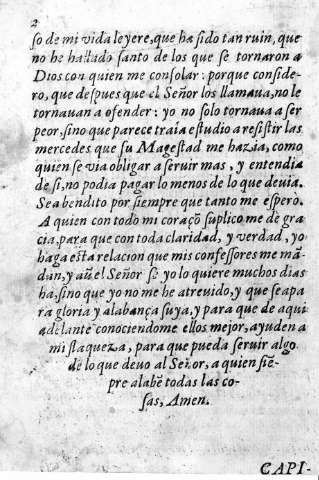 2
so de mi vida leyere, que ha sido tan ruin, que
no he hallado santo de los que se tornaron a
Dios con quien me consolar: porque conside-
ro, que despues que el Señor los llamaua, no le
tornauan a ofender: yo no solo tornaua a ser
peor, sino que parece traia estudio a resistir las
mercedes que su Magestad me hazia, como
quien se via obligar a seruir mas, y entendia
de si, no podia pagar lo menos de lo que deuia.
Sea bendito por siempre que tanto me espero.
A quien con todo mi coraçõ suplico me de gra
cia, para que con toda claridad, y verdad, yo
haga esta relacion que mis confessores me mã
dan, y aũ el Señor se yo lo quiere muchos dias
ha, sino que yo no me he atreuido, y que se a pa
ra gloria y alabança suya, y para que de aqui
adelante conociendome ellos mejor, ayuden a
mi flaqueza, para que pueda seruir algo
de lo que deuo al Señor, a quien siẽ-
pre alabẽ todas las co-
sas, Amen.
CAPI-